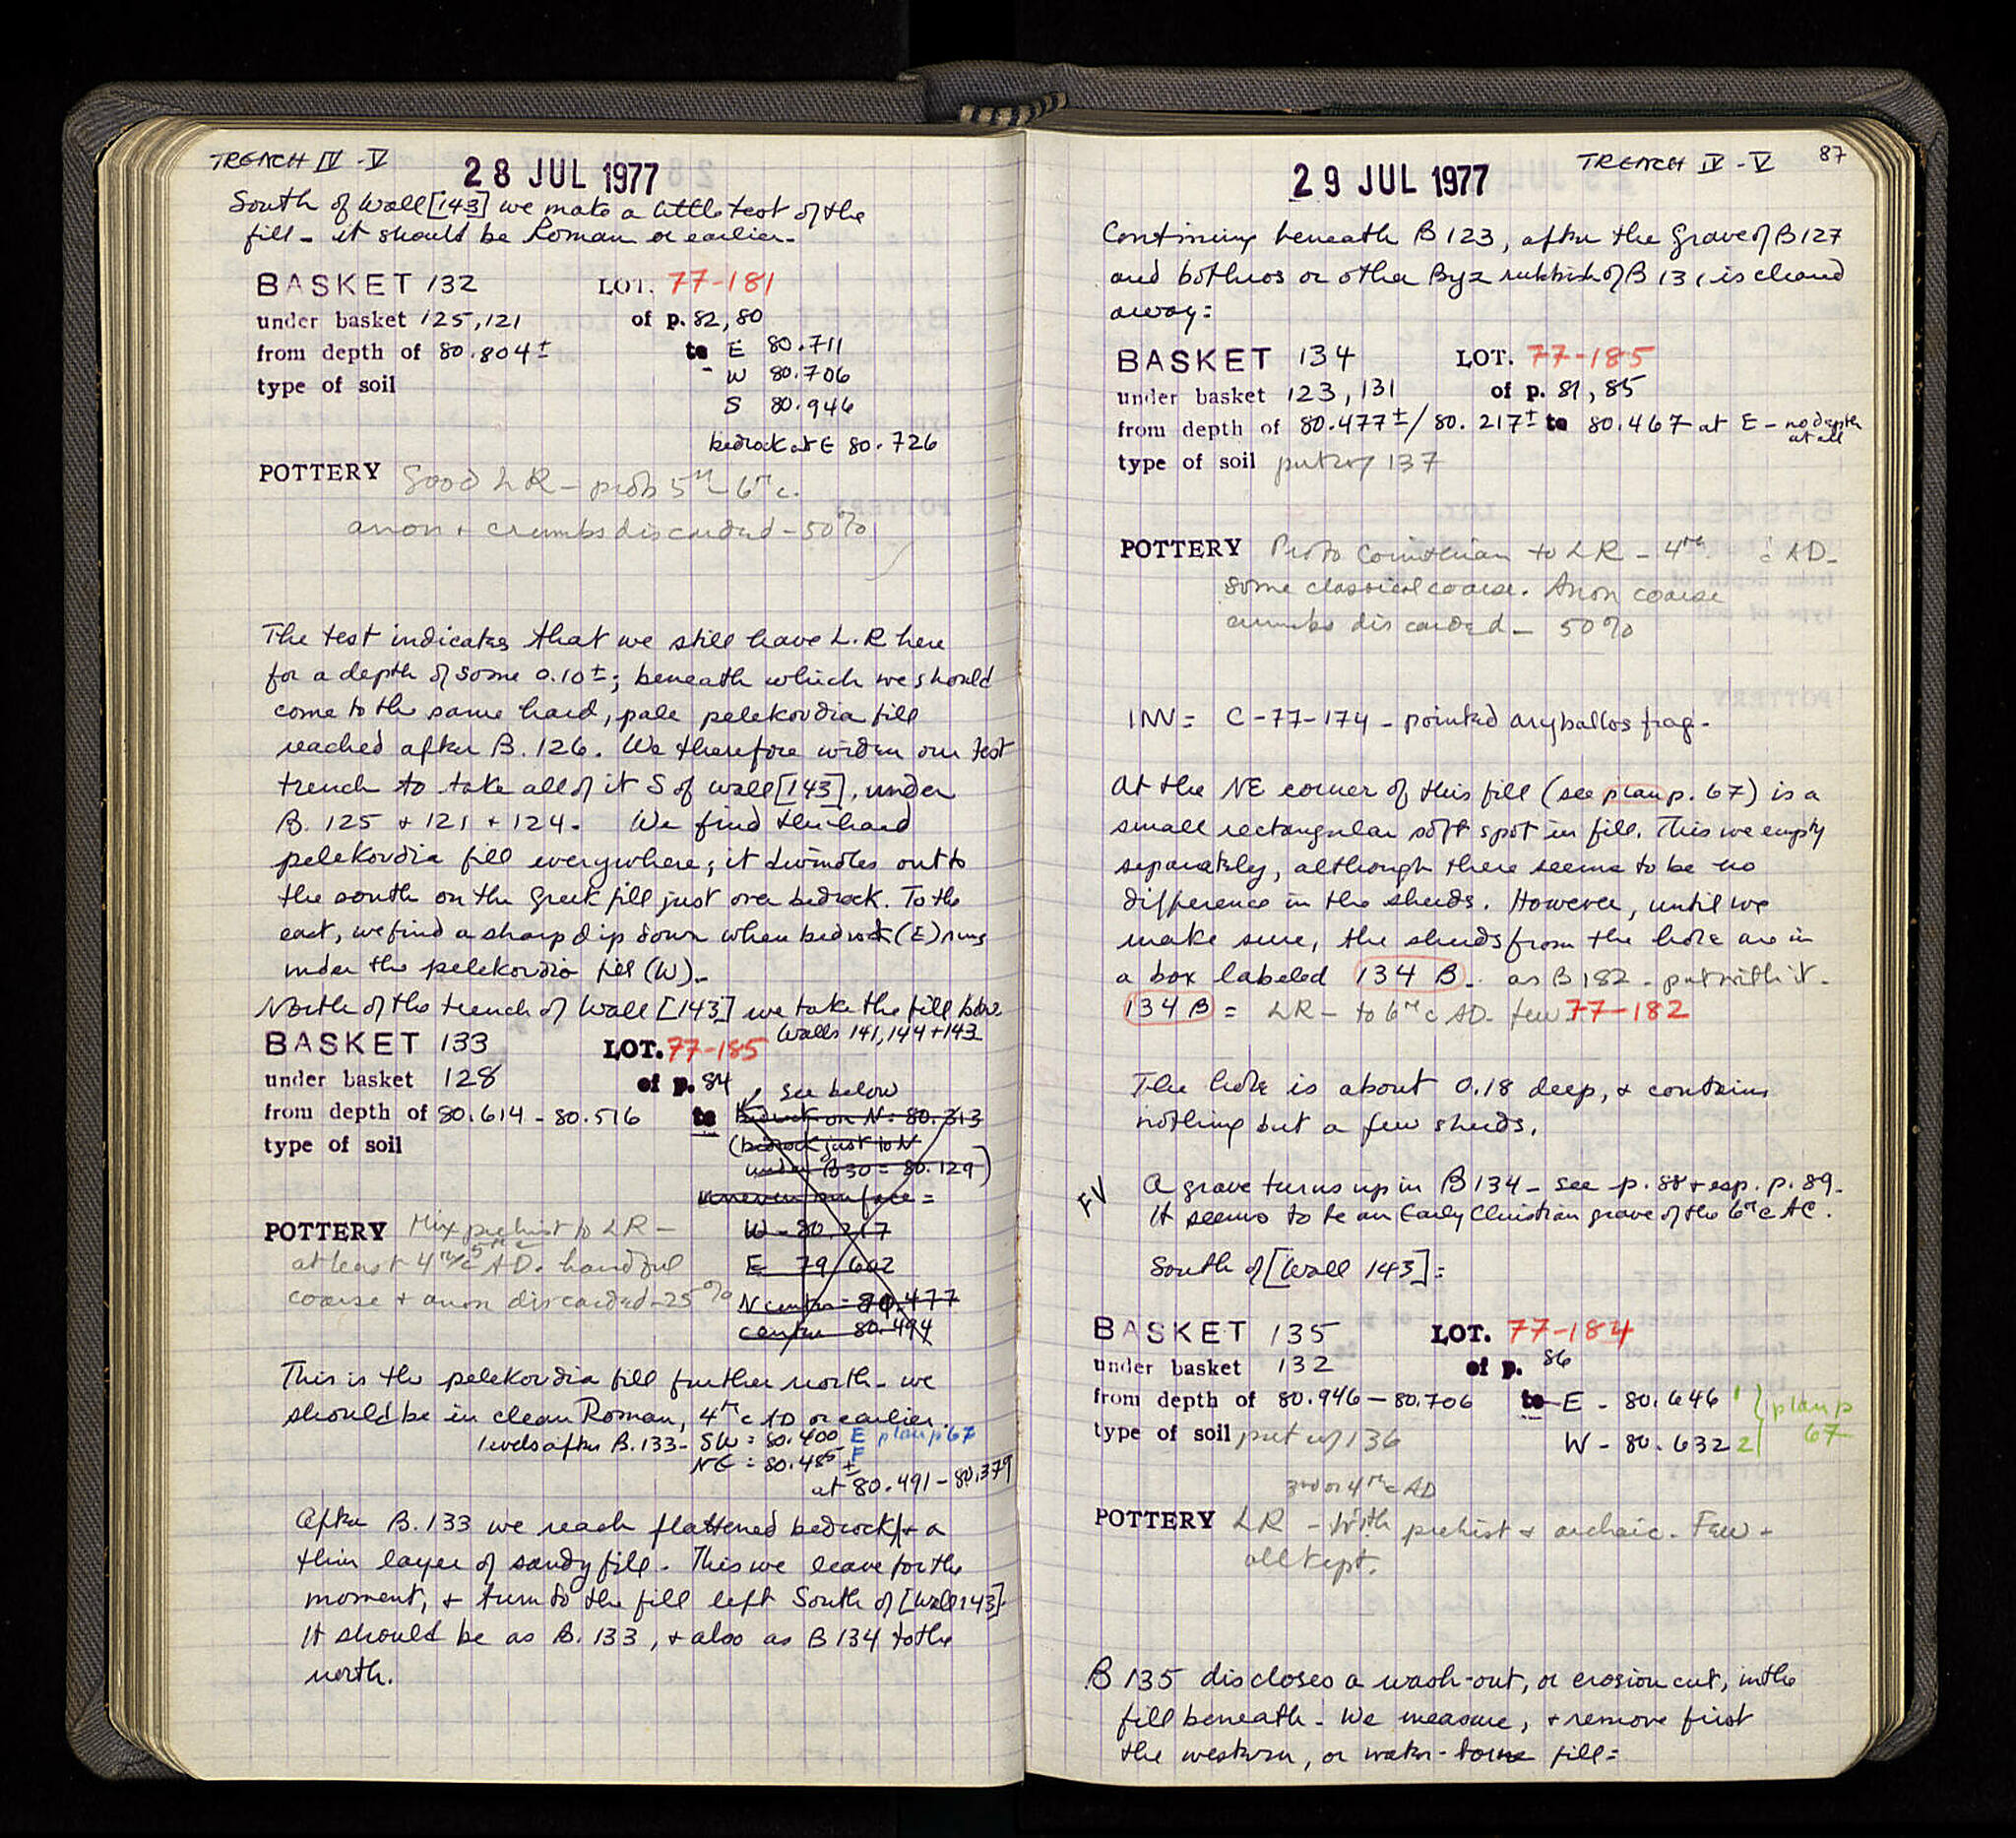 TRENCH IV - V
28 JUL 1977
South of Wall [143] we make a little test of the
fill - it should be Roman or earlier -
BASKET 132 LOT. 77-181
under basket 125, 121 of p. 82, 80
from depth of 80.804± to E 80.711
W 80.706
type of soil
S 80.946
bedrock at E 80.726
POTTERY Good LR - prob 5th - 6th c.
anon + crumbs discarded - 50%
The test indicates that we still have L.R here
for a depth of some 0.10±; beneath which we should
come to the same hard, pale pelekoudia fill
reached after B. 126. We therefore widen our test
trench to take all of it S of wall [143], under
B. 125 + 121 + 124. We find the hard
pelekoudia fill everywhere; it dwindles out to
the south on the Greek fill just over bedrock. To the
east, we find a sharp dip down when bedrock (E) runs
under the pelekoudia fill (W) -
North of the trench of Wall [143] we take the fill below
Walls 141, 144 + 143
BASKET 133 LOT. 77-185
under basket 128 of p. 84
see below
from depth of 80.614 - 80.516 to bedrock on N: 80.313
type of soil (bedrock just to N
under B30 = 80.129)
uneven surface =
W - 80.217
E 79/602
N center = 80.477
center 80.494
POTTERY Mix prehist to LR -
at least 4th/5th c AD. handful
coarse + anon discarded - 25%
This is the pelekoudia fill further north - we
should be in clean Roman, 4th c AD or earlier.
levels after B. 133 - SW = 80.400 E plan p 67
NE = 80.485± F
at 80.491 - 80.379
After B. 133 we reach flattened bedrock + a
thin layer of sandy fill. This we leave for the
moment, + turn to the fill left South of [Wall 143].
It should be as B. 133, + also as B 134 to the
north.
TRENCH IV - V 87
29 JUL 1977
Continuing beneath B 123, after the grave of B 127
and bothros or other Byz rubbish of B 131 is cleared
away:
BASKET 134 LOT. 77-185
under basket 123, 131 of p. 81, 85
from depth of 80.477± / 80.217± to 80.467 at E - no depth
at all
type of soil put w/ 137
POTTERY Proto Corinthian to LR - 4th c AD -
some classical coarse. Anon coarse
crumbs discarded - 50%
INV = C-77-174 - pointed aryballos frag -
At the NE corner of this fill (see plan p. 67) is a
small rectangular soft spot in fill. This we empty
separately, although there seems to be no
difference in the sherds. However, until we
make sure, the sherds from the hole are in
a box labeled 134 B - as B 182 - put with it -
134 B = LR - to 6th c AD - few 77-182
The hole is about 0.18 deep, + contains
nothing but a few sherds.
FV A grave turns up in B 134 - see p. 88 + esp. p. 89 -
It seems to be an Early Christian grave of the 6th c AC.
South of [Wall 143] =
BASKET 135 LOT. 77-184
under basket 132 of p. 86
from depth of 80.946 - 80.706 to E - 80.646 1 plan p
type of soil put w/ 136 W - 80.632 2 67
3rd or 4th c AD
POTTERY LR - With prehist + archaic. Few -
all kept.
B 135 discloses a wash-out, or erosion cut, in the
fill beneath. We measure, + remove first
the western, or water-borne fill =